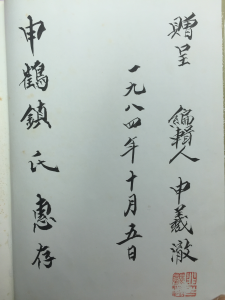 贈呈 編輯人 申羲澈
一九八四年十月五日
申鶴鎮氏 惠存